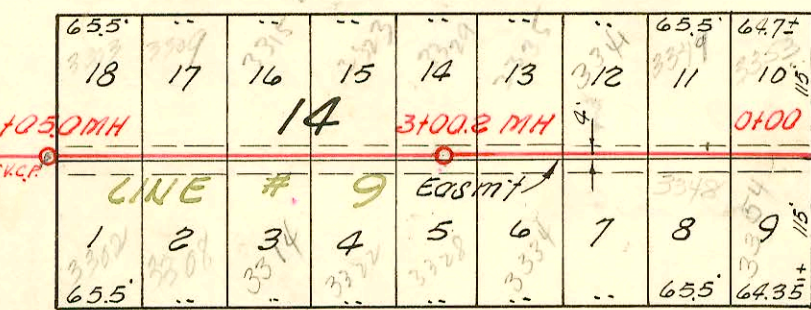 65.5' " " " " " " 65.5' 64.7±
3309 3323 3329 3341 3349
18 17 16 15 14 13 12 11 10 115'
+05.0 MH 14 3+00.2 MH 4' 0+00
V.C.P.
LINE # 9 Easm't 3348
1 2 3 4 5 6 7 8 9 115'
3302 3308 3314 3322 3328 3334 3354
65.5' " " " " " " 65.5' 64.35±